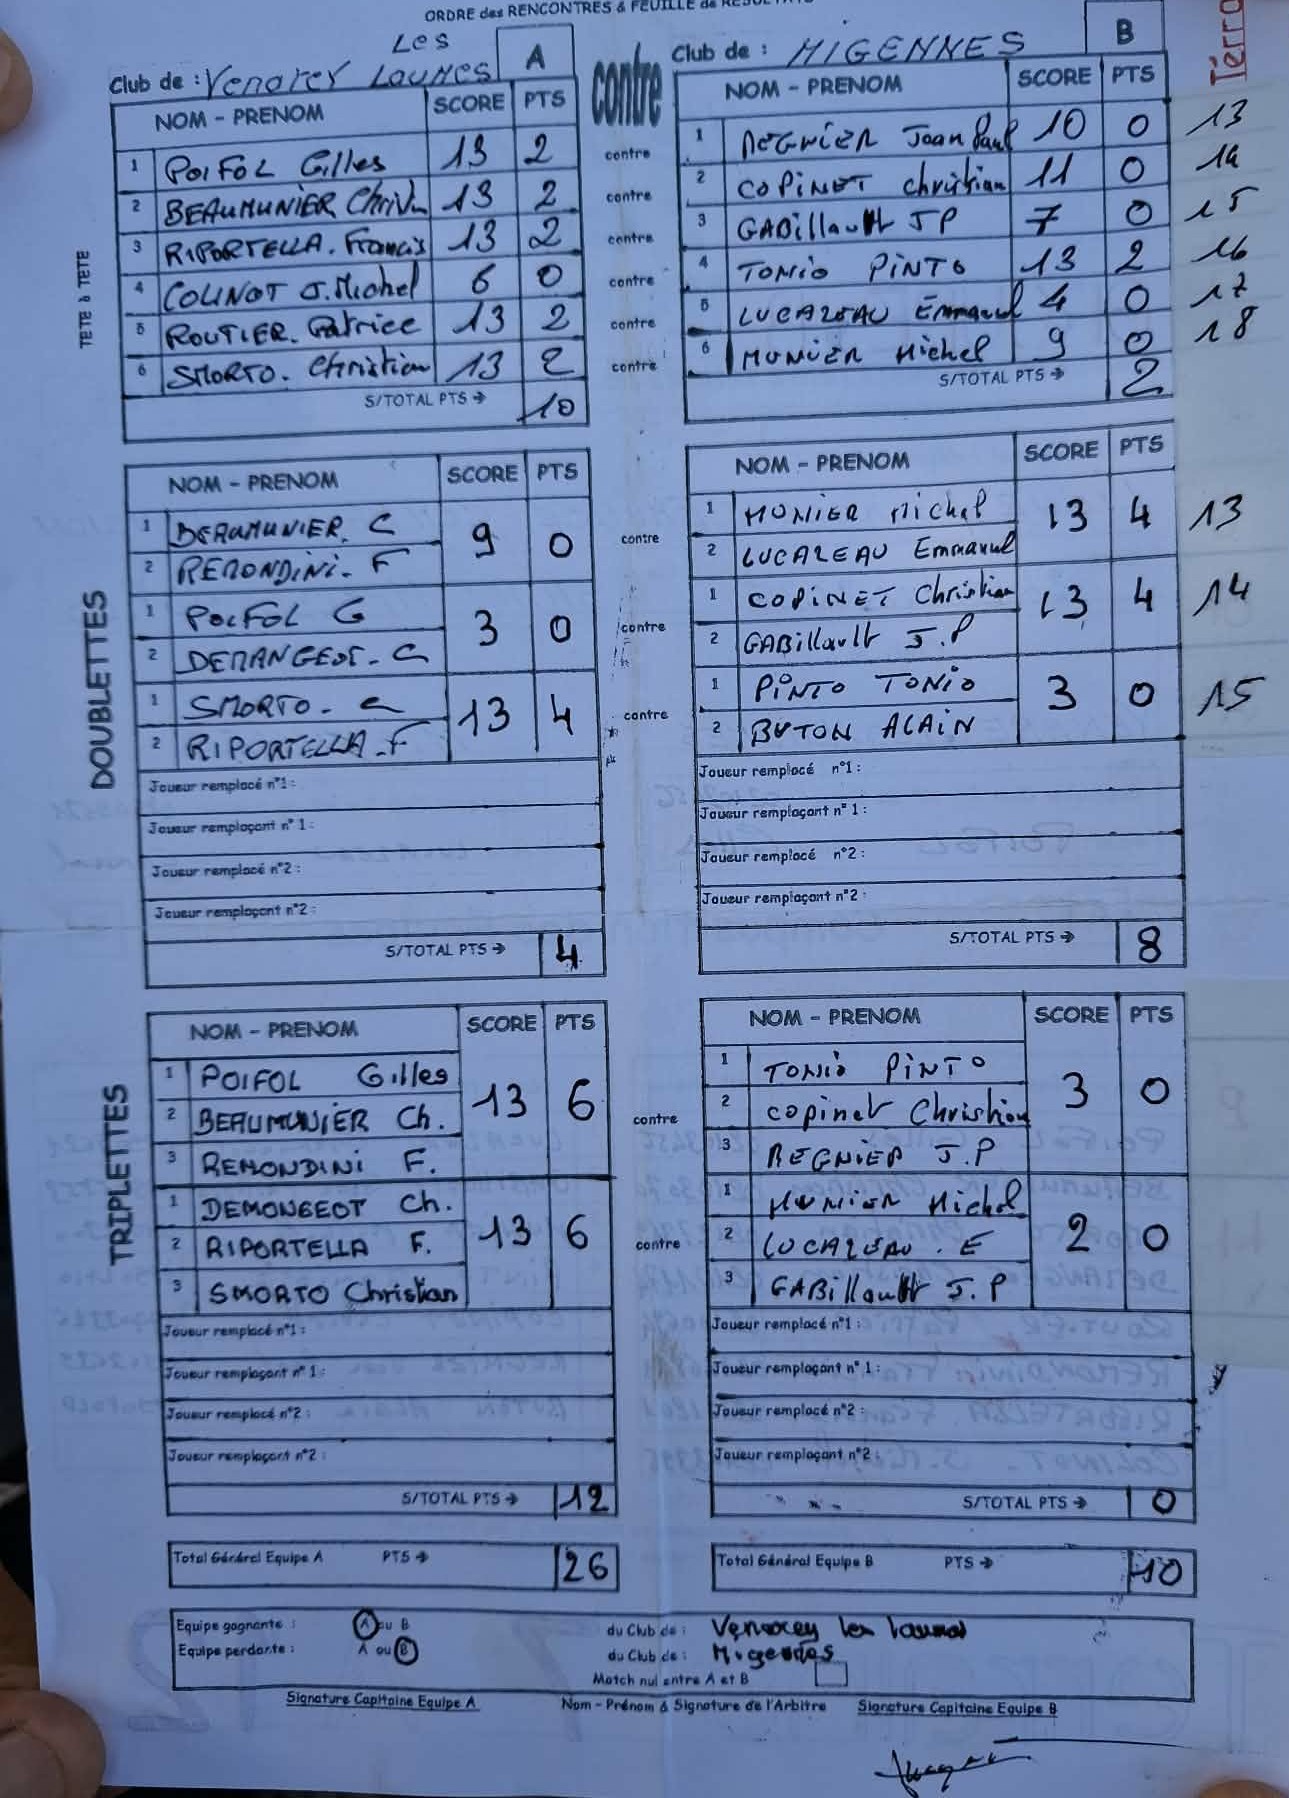 ORDRE des RENCONTRES & FEUILLE de
Les
Club de : Venarey Laumes A contre Club de : MIGENNES B
NOM - PRENOM SCORE PTS NOM - PRENOM SCORE PTS
TETE à TETE
1 POIFOL Gilles 13 2 contre 1 REGNIER Jean Paul 10 0 13
2 BEAUMUNIER 13 2 contre 2 COPINET christian 11 0 14
3 RIPORTELLA. Francis 13 2 contre 3 GABillault JP 7 0 15
4 COLINOT J.Michel 6 0 contre 4 TONIO PINTO 13 2 16
5 ROUTIER. Patrice 13 2 contre 5 LUCAZEAU Emmanuel 4 0 17
6 SMORTO. Christian 13 2 contre 6 MUNIER Michel 9 0 18
S/TOTAL PTS → 10 S/TOTAL PTS → 2
DOUBLETTES
NOM - PRENOM SCORE PTS NOM - PRENOM SCORE PTS
1 BEAUMUNIER. C 9 0 contre 1 MUNIER Michel 13 4 13
2 REMONDINI. F 2 LUCAZEAU Emmanuel
1 POIFOL G 3 0 contre 1 COPINET Christian 13 4 14
2 DEMANGEOT. C 2 GABillault J.P
1 SMORTO. C 13 4 contre 1 PINTO TONIO 3 0 15
2 RIPORTELLA.F 2 BUTON ALAIN
Joueur remplacé n°1 : Joueur remplacé n°1 :
Joueur remplaçant n° 1 : Joueur remplaçant n° 1 :
Joueur remplacé n°2 : Joueur remplacé n°2 :
Joueur remplaçant n°2 : Joueur remplaçant n°2 :
S/TOTAL PTS → 4 S/TOTAL PTS → 8
TRIPLETTES
NOM - PRENOM SCORE PTS NOM - PRENOM SCORE PTS
1 POIFOL Gilles 13 6 contre 1 TONIO PINTO 3 0
2 BEAUMUNIER Ch. 2 copinet Christian
3 REMONDINI F. 3 REGNIER J.P
1 DEMONGEOT Ch. 13 6 contre 1 MUNIER Michel 2 0
2 RIPORTELLA F. 2 LUCAZEAU . E
3 SMORTO Christian 3 GABillault J.P
Joueur remplacé n°1 : Joueur remplacé n°1 :
Joueur remplaçant n° 1 : Joueur remplaçant n° 1 :
Joueur remplacé n°2 : Joueur remplacé n°2 :
Joueur remplaçant n°2 : Joueur remplaçant n°2 :
S/TOTAL PTS → 12 S/TOTAL PTS → 0
Total Général Equipe A PTS → 26 Total Général Equipe B PTS → 10
Equipe gagnante : A ou B du Club de : Venarey les laumes
Equipe perdante : A ou B du Club de : Migennes
Match nul entre A et B
Signature Capitaine Equipe A Nom - Prénom & Signature de l'Arbitre Signature Capitaine Equipe B